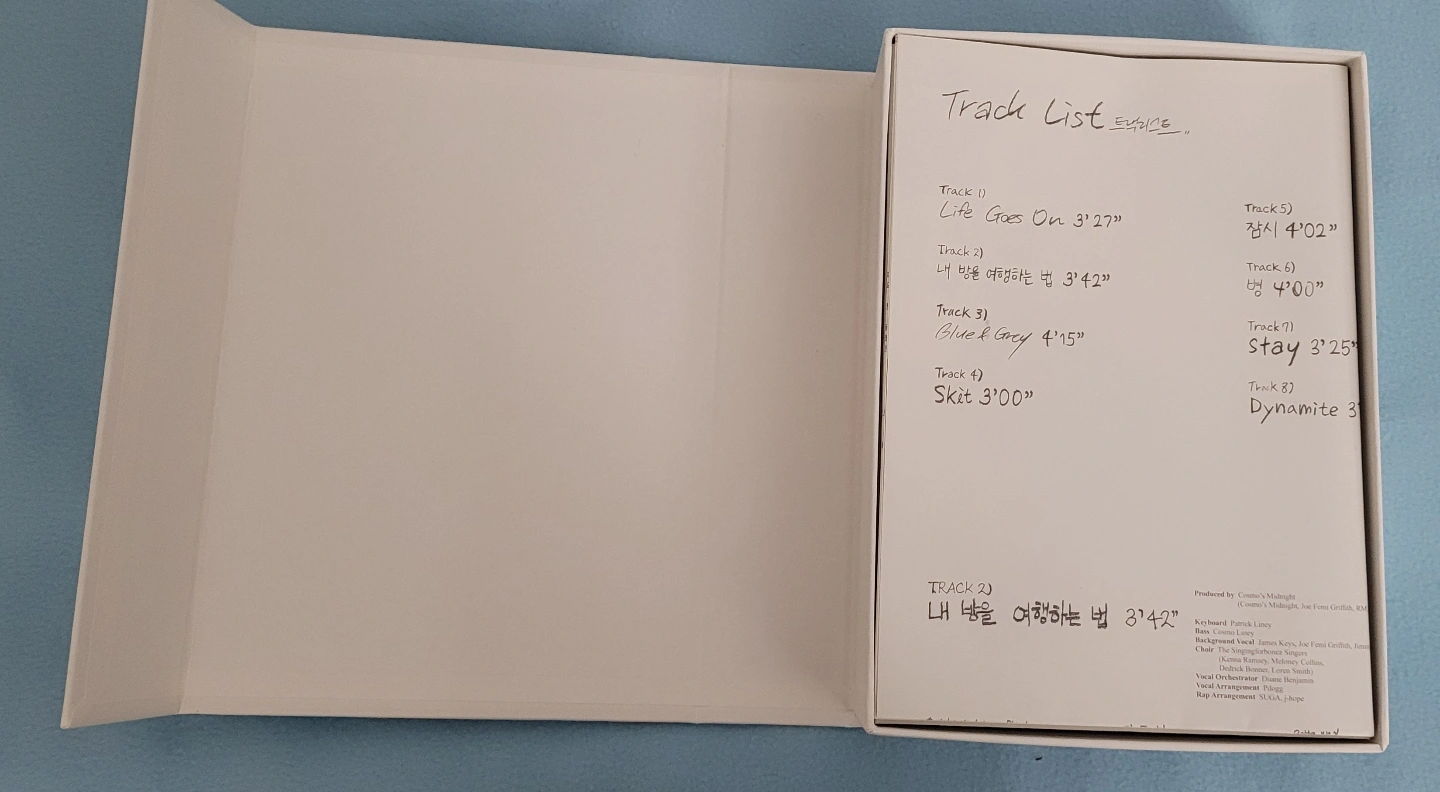 Track List 트랙리스트..
Track 1)
Life Goes On 3'27"
Track 2)
내 방을 여행하는 법 3'42"
Track 3)
Blue & Grey 4'15"
Track 4)
Skit 3'00"
Track 5)
잠시 4'02"
Track 6)
병 4'00"
Track 7)
Stay 3'25"
Track 8)
Dynamite 3'
TRACK 2)
내 방을 여행하는 법 3'42"
Produced by Cosmo's Midnight
(Cosmo's Midnight, Joe Femi Griffith, RM
Keyboard Patrick Liney
Bass Cosmo Liney
Background Vocal James Keys, Joe Femi Griffith,
Choir The Singingforbonez Singers
(Kenna Ramsey, Meloney Collins,
Dedrick Bonner, Loren Smith)
Vocal Orchestrator Duane Benjamin
Vocal Arrangement Pdogg
Rap Arrangement SUGA, j-hope